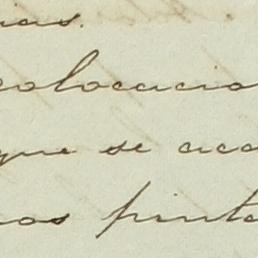 colocacio
que se aca
nos pinta